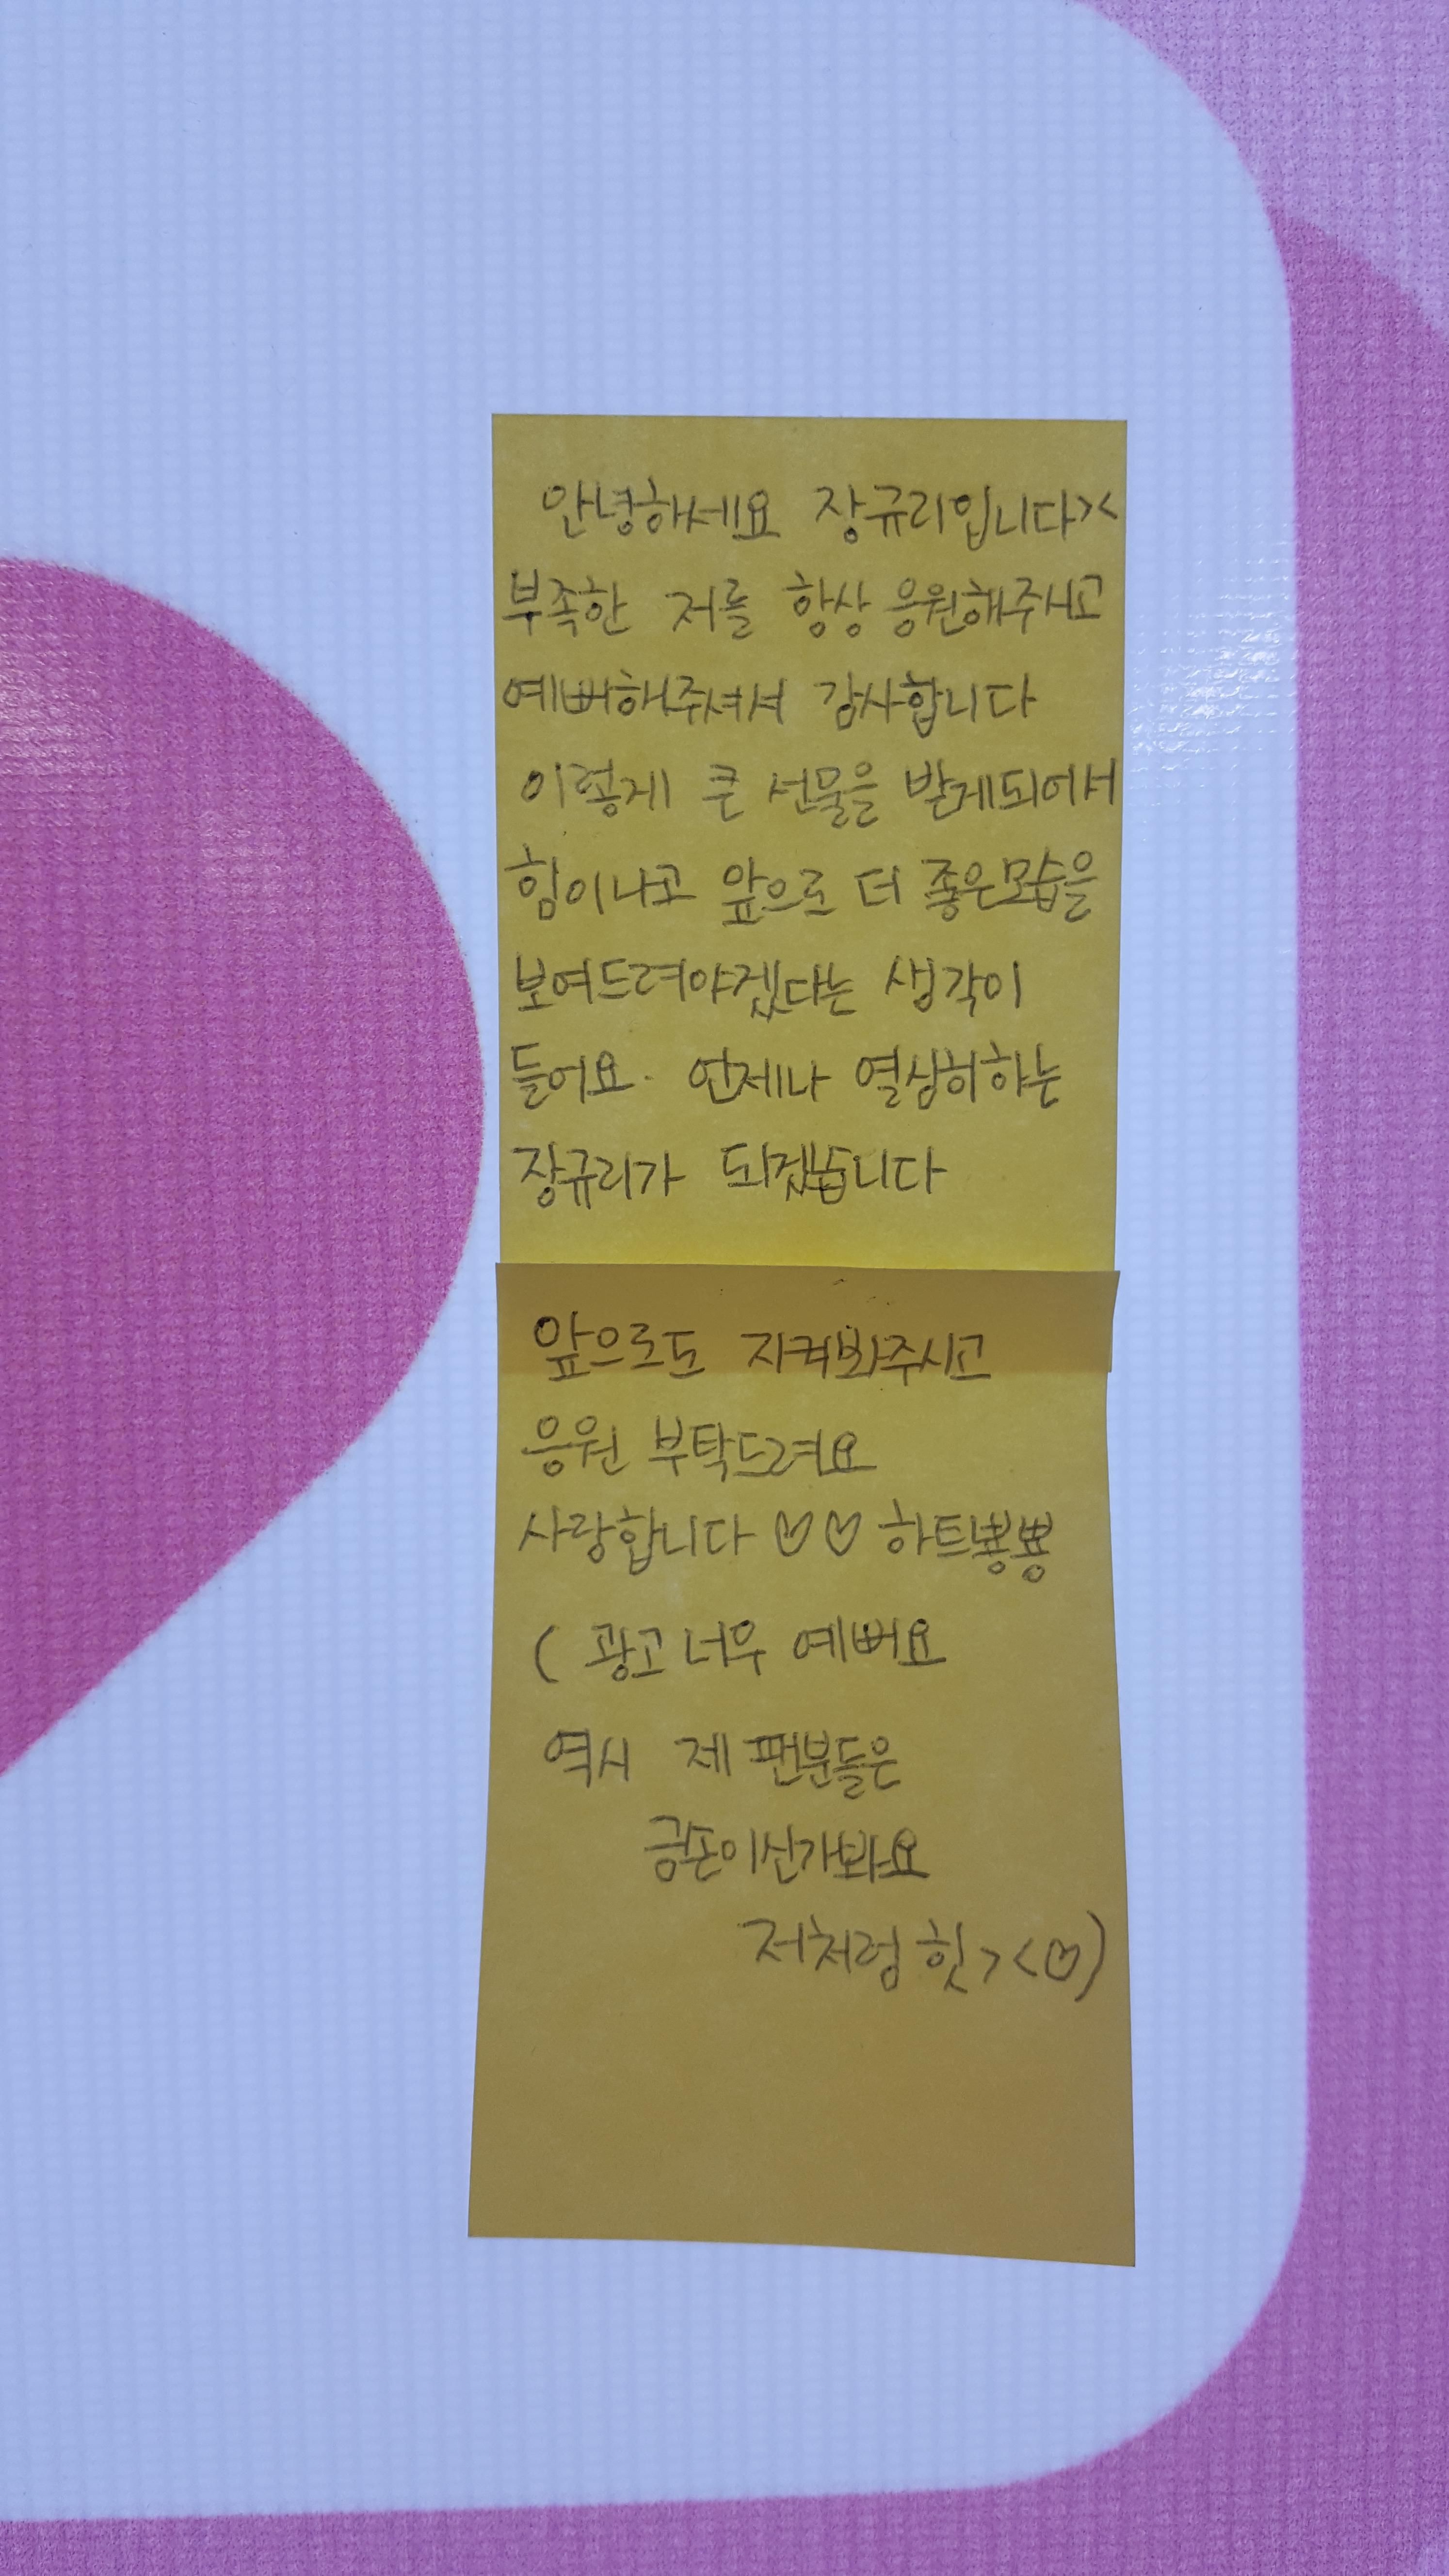 안녕하세요 장규리입니다><
부족한 저를 항상 응원해주시고
예뻐해주셔서 감사합니다
이렇게 큰 선물을 받게되어서
힘이나고 앞으로 더 좋은모습을
보여드려야겠다는 생각이
들어요. 언제나 열심히하는
장규리가 되겠습니다
앞으로도 지켜봐주시고
응원 부탁드려요
사랑합니다 ♡♡ 하트뿅뿅
( 광고 너무 예뻐요
역시 제 팬분들은
금손이신가봐요
저처럼 힛 ><♡)